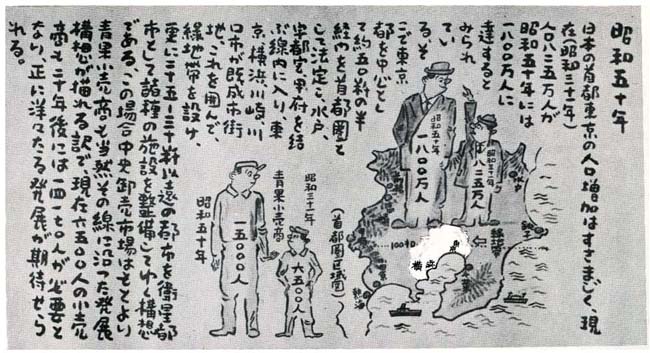 昭和五十年
日本の首都東京の人口増加はすさまじく、現
在(昭和三十一年)
人口八二五万人が
昭和五十年には
一八〇〇万人に
達すると
みられ
てい
る。そ
こで東京
都を中心とし
て約五〇粁の半
経内を首都圏と
して法定し、水戸、
宇都宮、甲府を結
ぶ線内に入り、東
京、横浜、川崎、川
口市が既成市街
地、これを囲んで、
緑地帯を設け、
更に二十五-三十粁以遠の都市を衛星都
市として諸種の施設を整備してゆく構想
である。この場合中央卸売市場はもとより
青果小売商も当然その線に沿った発展
構想が描れる訳で現在六五〇〇人の小売
商も二十年後には四一七〇人が必要と
なり、正に洋々たる発展が期待せら
れる。
昭和三十一年
八二五万人
昭和五十年
一八〇〇万人
緑地帯
東京
横浜
100キロ
熱海
(首都圏区域図)
昭和三十一年
六五〇〇人
青果小売商
一五〇〇〇人
昭和五十年